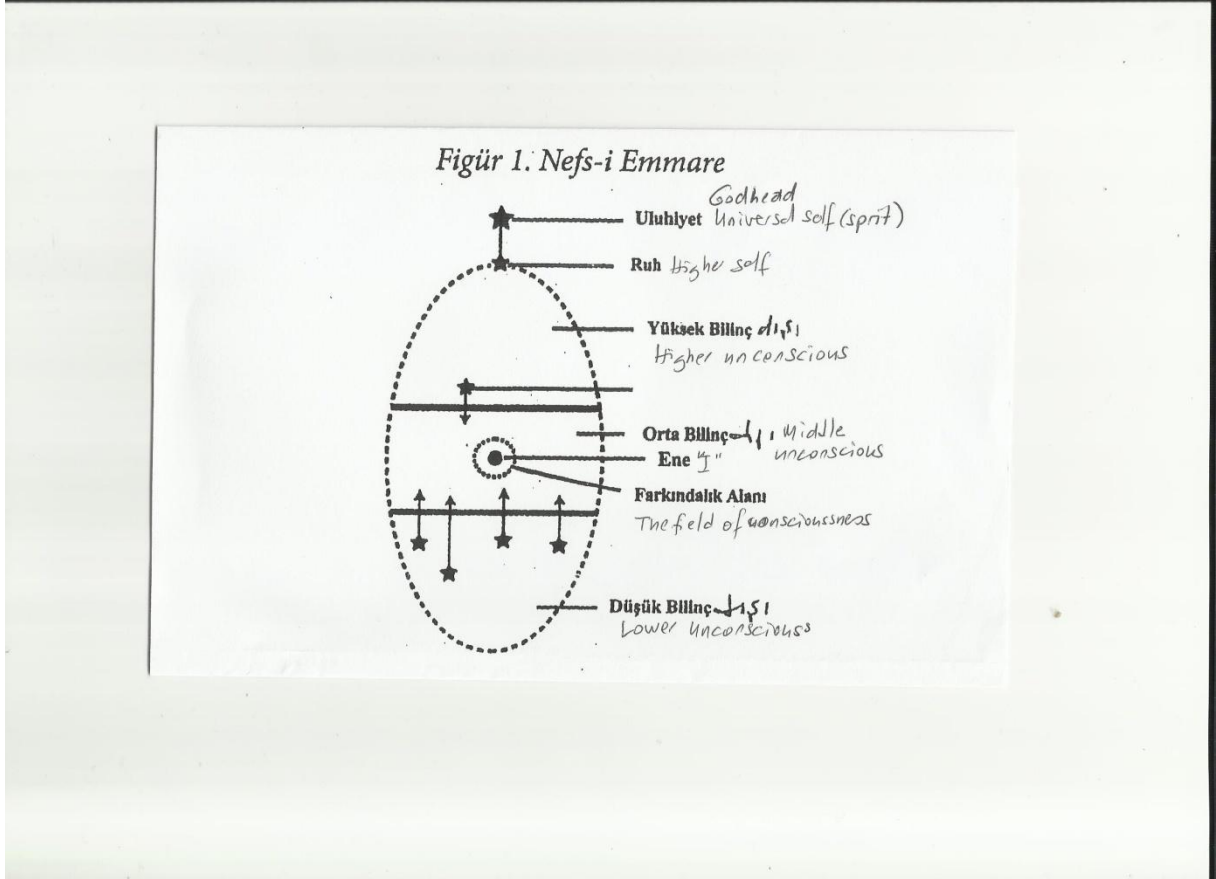 Figür 1. Nefs-i Emmare
Godhead
Uluhiyet Universal self (sprit)
Ruh Higher self
Yüksek Bilinç dışı
Higher unconscious
Orta Bilinç dışı middle
unconscious
Ene "I"
Farkındalık Alanı
The field of conscioussness
Düşük Bilinç dışı
Lower unconscious